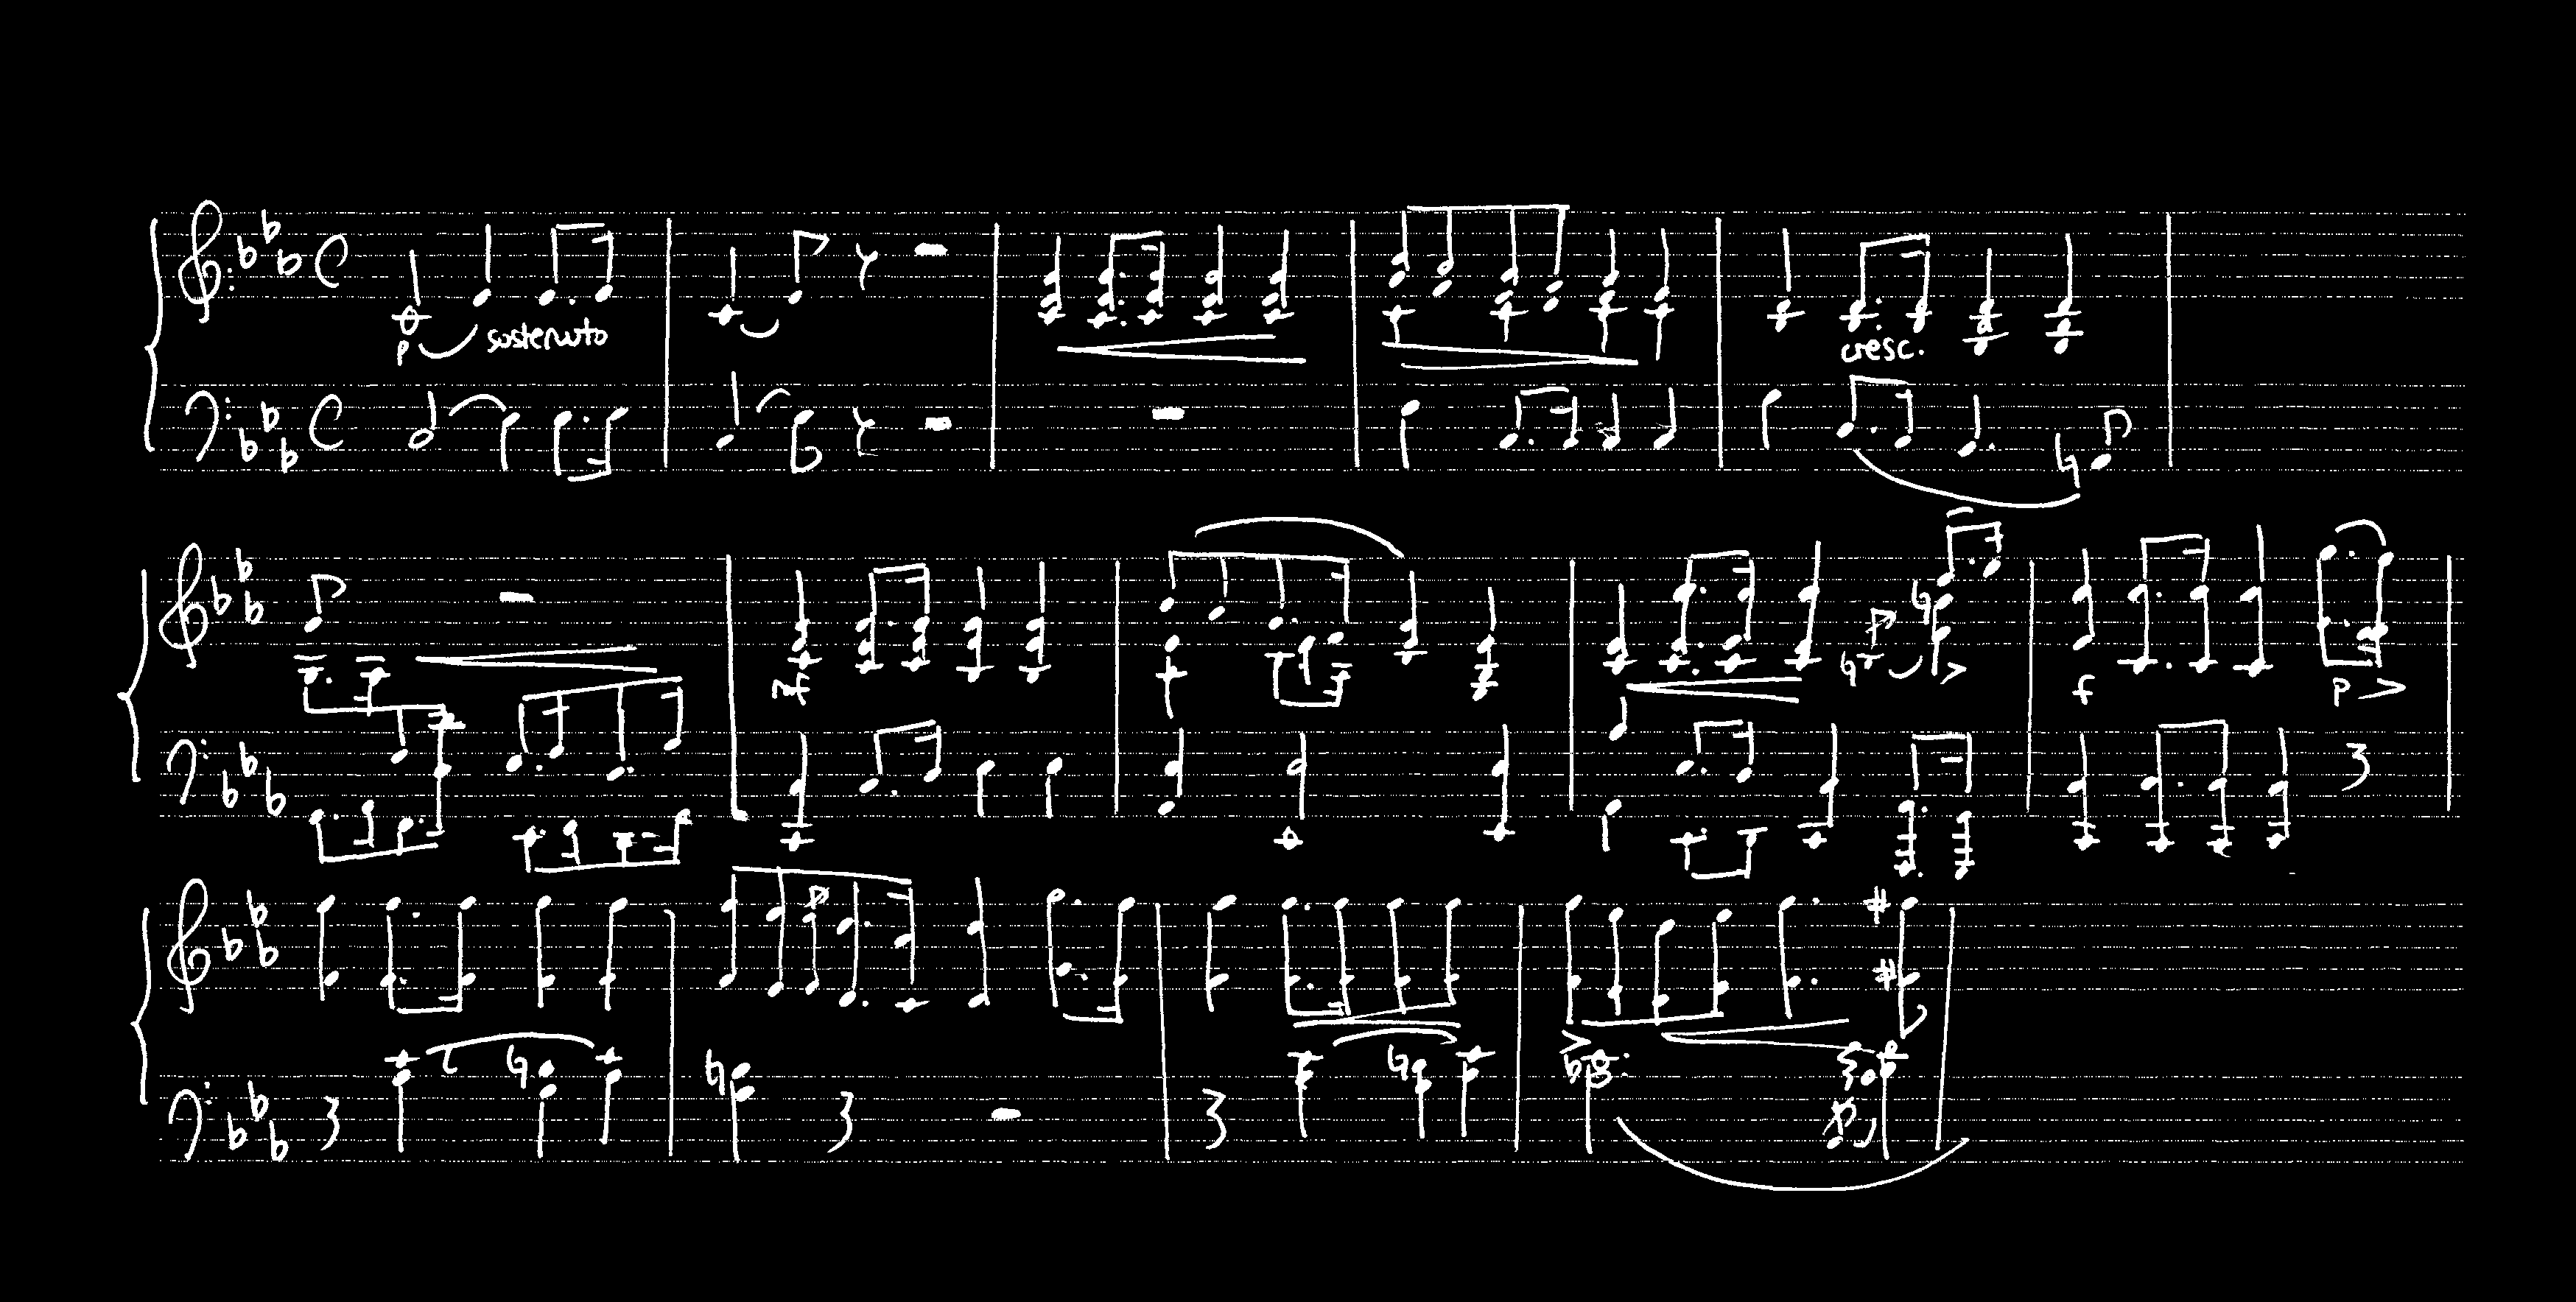 p sostenuto
cresc.
mf
f p